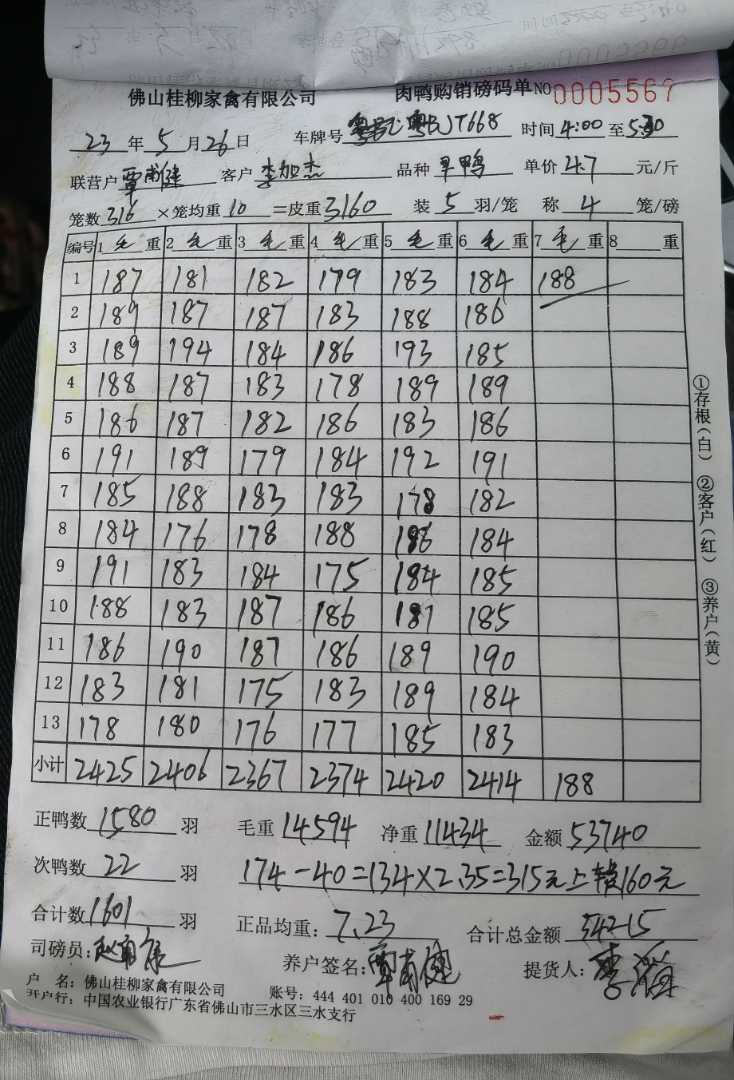 佛山桂柳家禽有限公司 肉鸭购销磅码单 NO 0005567
23 年 5 月 26 日 车牌号 粤BJT668 时间 4:00 至 5:30
联营户 覃甫健 客户 李加杰 品种 旱鸭 单价 4.7 元/斤
笼数 316 ×笼均重 10 =皮重 3160 装 5 羽/笼 称 4 笼/磅
编号 1 毛 重 2 毛 重 3 毛 重 4 毛 重 5 毛 重 6 毛 重 7 毛 重 8 重
1 187 181 182 179 183 184 188
2 189 187 187 183 188 186
3 189 194 184 186 193 185
4 188 187 183 178 189 189
5 186 187 182 186 183 186
6 191 189 179 184 192 191
7 185 188 183 183 178 182
8 184 176 178 188 186 184
9 191 183 184 175 184 185
10 188 183 187 186 181 185
11 186 190 187 186 189 190
12 183 181 175 183 189 184
13 178 180 176 177 185 183
小计 2425 2406 2367 2374 2420 2414 188
正鸭数 1580 羽 毛重 14594 净重 11434 金额 53740
次鸭数 22 羽 174-40=134×2.35=315元 上 160元
合计数 1601 羽 正品均重: 7.23 合计总金额 54215
司磅员: 养户签名: 覃甫健 提货人: 李
户 名: 佛山桂柳家禽有限公司 账号: 444 401 010 400 169 29
开户行: 中国农业银行广东省佛山市三水区三水支行
①存根(白) ②客户(红) ③养户(黄)